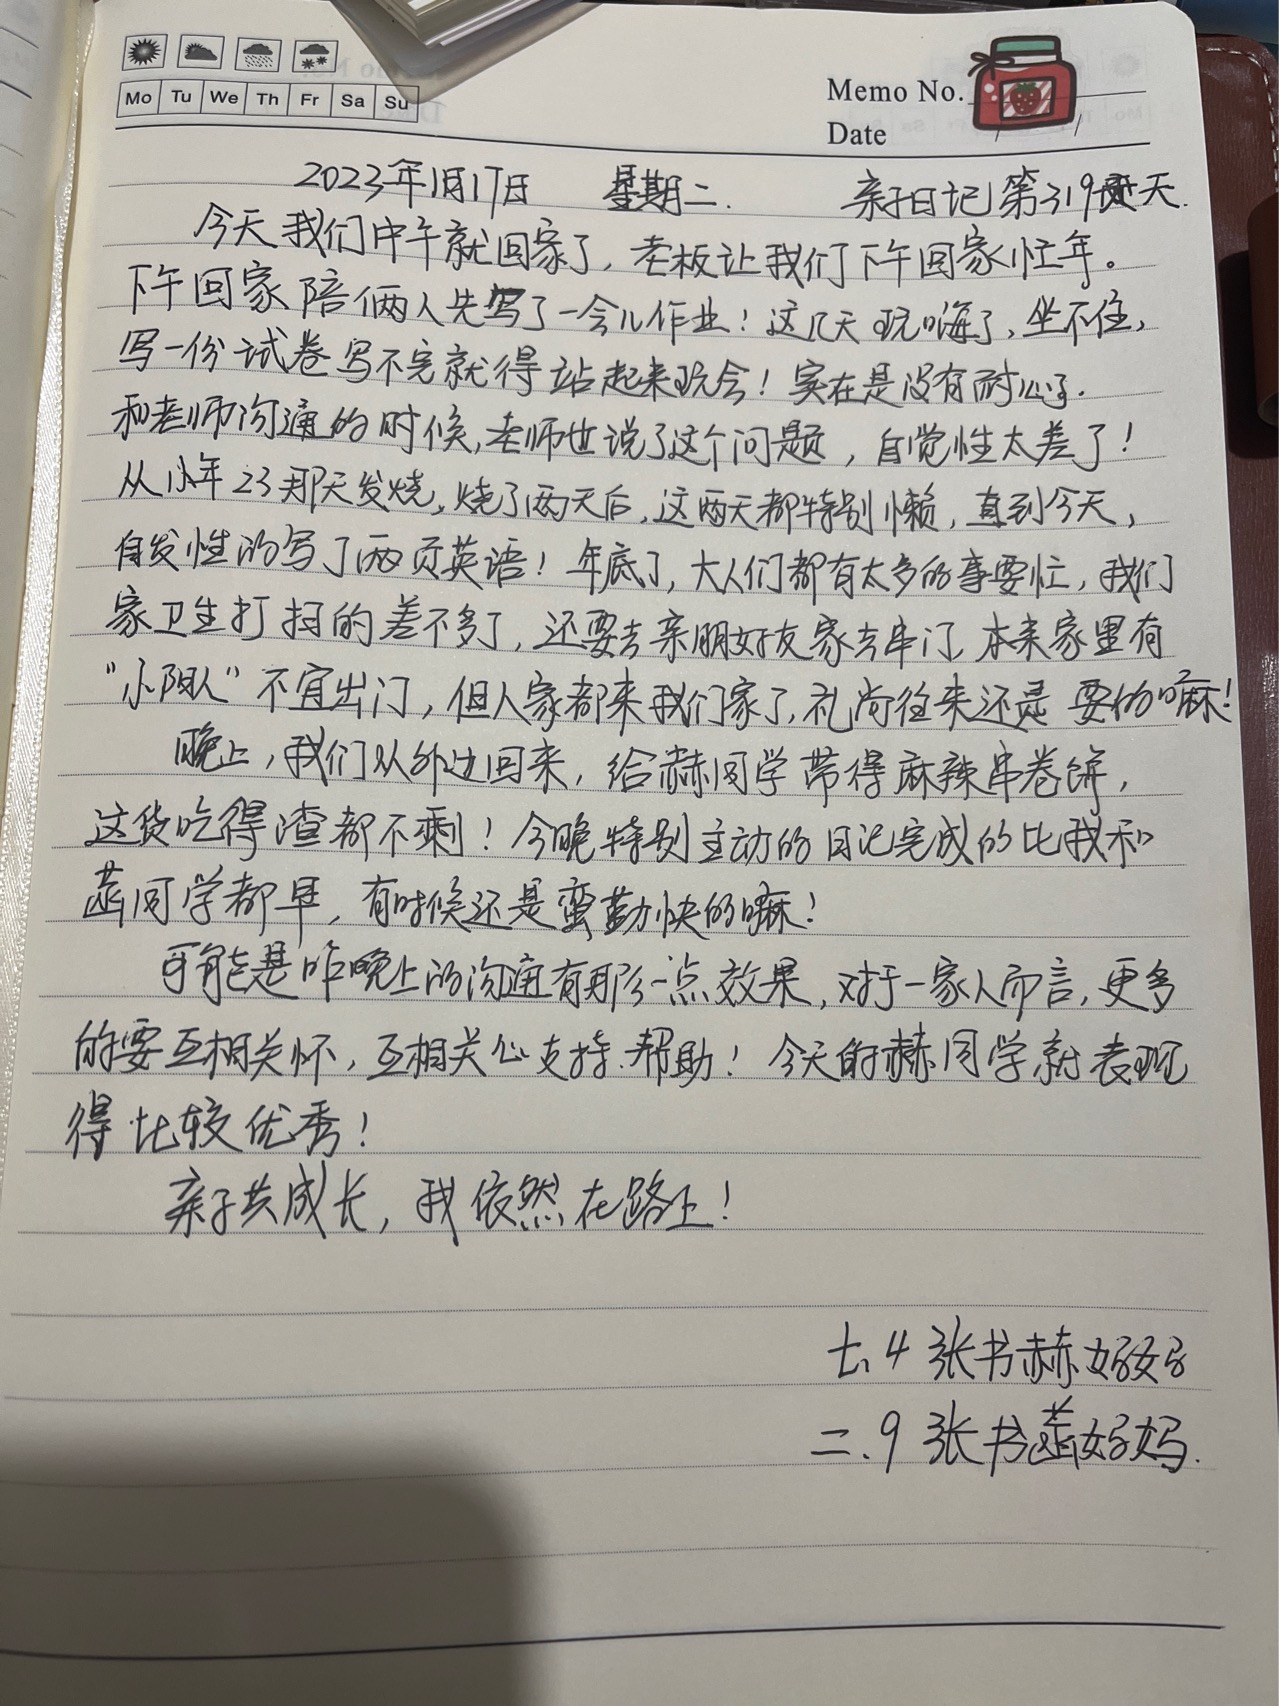 Mo Tu We Th Fr Sa Su
Memo No.
Date
2023年1月17日 星期二. 亲子日记第319天.
今天我们中午就回家了，老板让我们下午回家忙年。
下午回家陪俩人先写了一会儿作业！这几天玩嗨了，坐不住，
写一份试卷写不完就得站起来玩会！实在是没有耐心了.
和老师沟通的时候，老师也说了这个问题，自觉性太差了！
从小年23那天发烧，烧了两天后，这两天都特别懒，直到今天，
自发性的写了两页英语！年底了，大人们都有太多的事要忙，我们
家卫生打扫的差不多了，还要去亲朋好友家去串门，本来家里有
“小阳人”不宜出门，但人家都来我们家了，礼尚往来还是要的嘛！
晚上，我们从外边回来，给赫同学带得麻辣串卷饼，
这货吃得渣都不剩！今晚特别主动的日记完成的比我和
菡同学都早，有时候还是蛮勤快的嘛！
可能是昨晚上的沟通有那么一点效果，对于一家人而言，更多
的要互相关怀，互相关心支持.帮助！今天的赫同学就表现
得比较优秀！
亲子共成长，我依然在路上！
七.4 张书赫妈妈
二.9 张书菡妈妈.